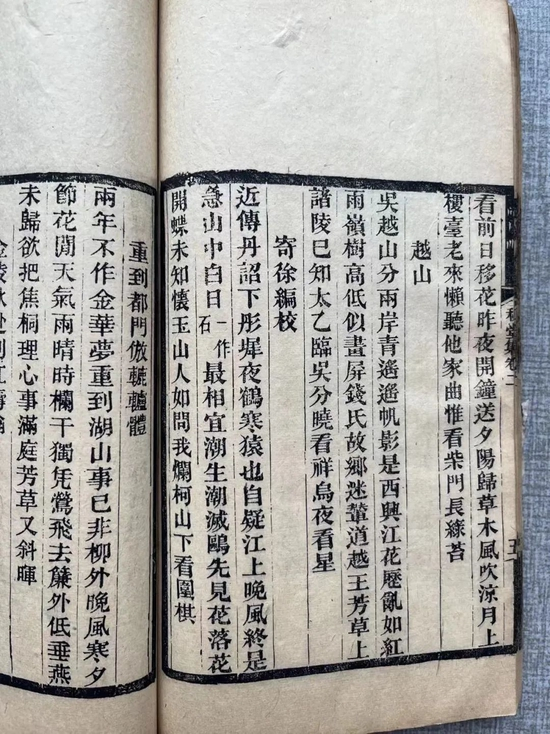 看前日移花昨夜開鐘送夕陽歸草木風吹涼月上
樓臺老來懶聽他家曲惟看柴門長綠苔
越山
吳越山分兩岸青遙遙帆影是西興江花歷亂如紅
雨嶺樹高低似畫屏錢氏故鄉迷輦道越王芳草上
諸陵已知太乙臨吳分曉看祥烏夜看星
寄徐編校
近傳丹詔下彤墀夜鶴寒猿也自疑江上晚風終是
急山中白日一作石最相宜潮生潮滅鷗先見花落花
開蝶未知懷玉山人如問我爛柯山下看圍棋
重到都門倣轆轤體
兩年不作金華夢重到湖山事已非柳外晚風寒夕
節花閒天氣雨晴時欄干獨凭鶯飛去簾外低垂燕
未歸欲把焦桐理心事滿庭芳草又斜暉